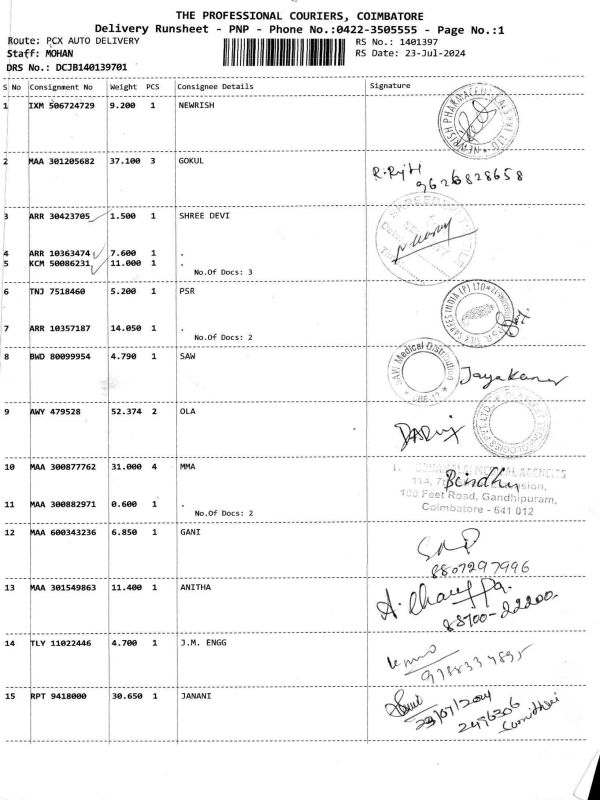 THE PROFESSIONAL COURIERS, COIMBATORE
Delivery Runsheet - PNP - Phone No.:0422-3505555 - Page No.:1
Route: PCX AUTO DELIVERY RS No.: 1401397
Staff: MOHAN RS Date: 23-Jul-2024
DRS No.: DCJB140139701
S No Consignment No Weight PCS Consignee Details Signature
1 IXM 506724729 9.200 1 NEWRISH
2 MAA 301205682 37.100 3 GOKUL
9626828658
3 ARR 30423705 1.500 1 SHREE DEVI
4 ARR 10363474 7.600 1 .
5 KCM 50086231 11.000 1 .
No.Of Docs: 3
6 TNJ 7518460 5.200 1 PSR
7 ARR 10357187 14.050 1 .
No.Of Docs: 2
8 BWD 80099954 4.790 1 SAW
SAWI Medical Distribution
9 AWY 479528 52.374 2 OLA
10 MAA 300877762 31.000 4 MMA
MEDICAL AGENCIES
Bindhu
100 Feet Road, Gandhipuram,
Coimbatore - 641 012
11 MAA 300882971 0.600 1 .
No.Of Docs: 2
12 MAA 600343236 6.850 1 GANI
8807297996
13 MAA 301549863 11.400 1 ANITHA
88700-22200
14 TLY 11022446 4.700 1 J.M. ENGG
15 RPT 9418000 30.650 1 JANANI
23/07/2024
2496306